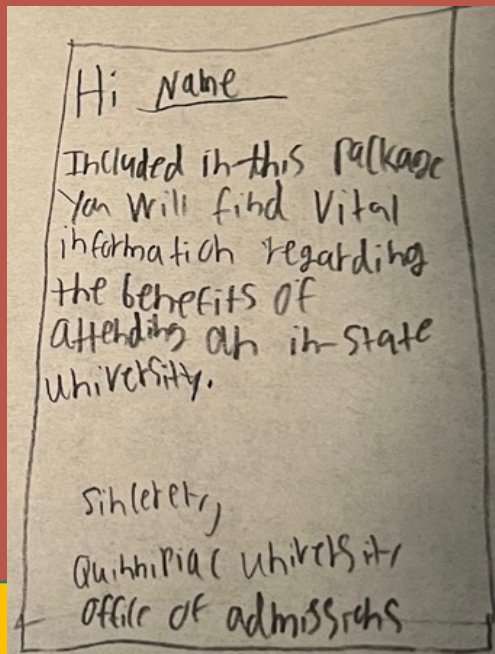 Hi Name
Included in this package
You will find vital
information regarding
the benefits of
attending an in-state
university.
Sincerely,
Quinnipiac university
office of admissions